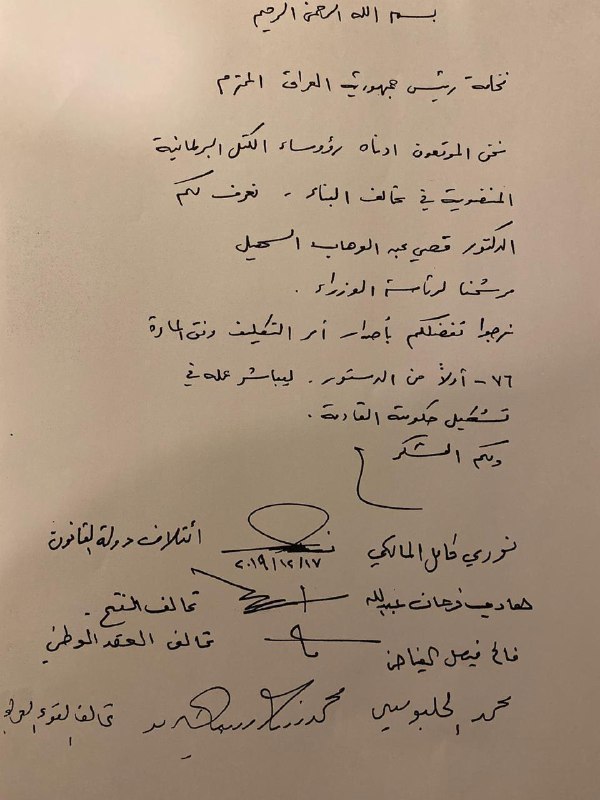 بسم الله الرحمن الرحيم
فخامة رئيس جمهورية العراق المحترم
نحن الموقعون ادناه رؤوساء الكتل البرلمانية
المنضوية في تحالف البناء . نعرف لكم
الدكتور قصي عبد الوهاب السهيل
مرشحنا لرئاسة الوزراء .
نرجوا تفضلكم بأصدار أمر التكليف وفق المادة
٧٦ - أولاً من الدستور . ليباشر عمله في
تشكيل حكومته القادمة .
ولكم الشكر
نوري كامل المالكي ٢٠١٩/١٢/١٧ ائتلاف دولة القانون
هادي فرحان عبدالله تحالف الفتح .
فالح فيصل الفياض تحالف العقد الوطني
محمد الحلبوسي تحالف القوى